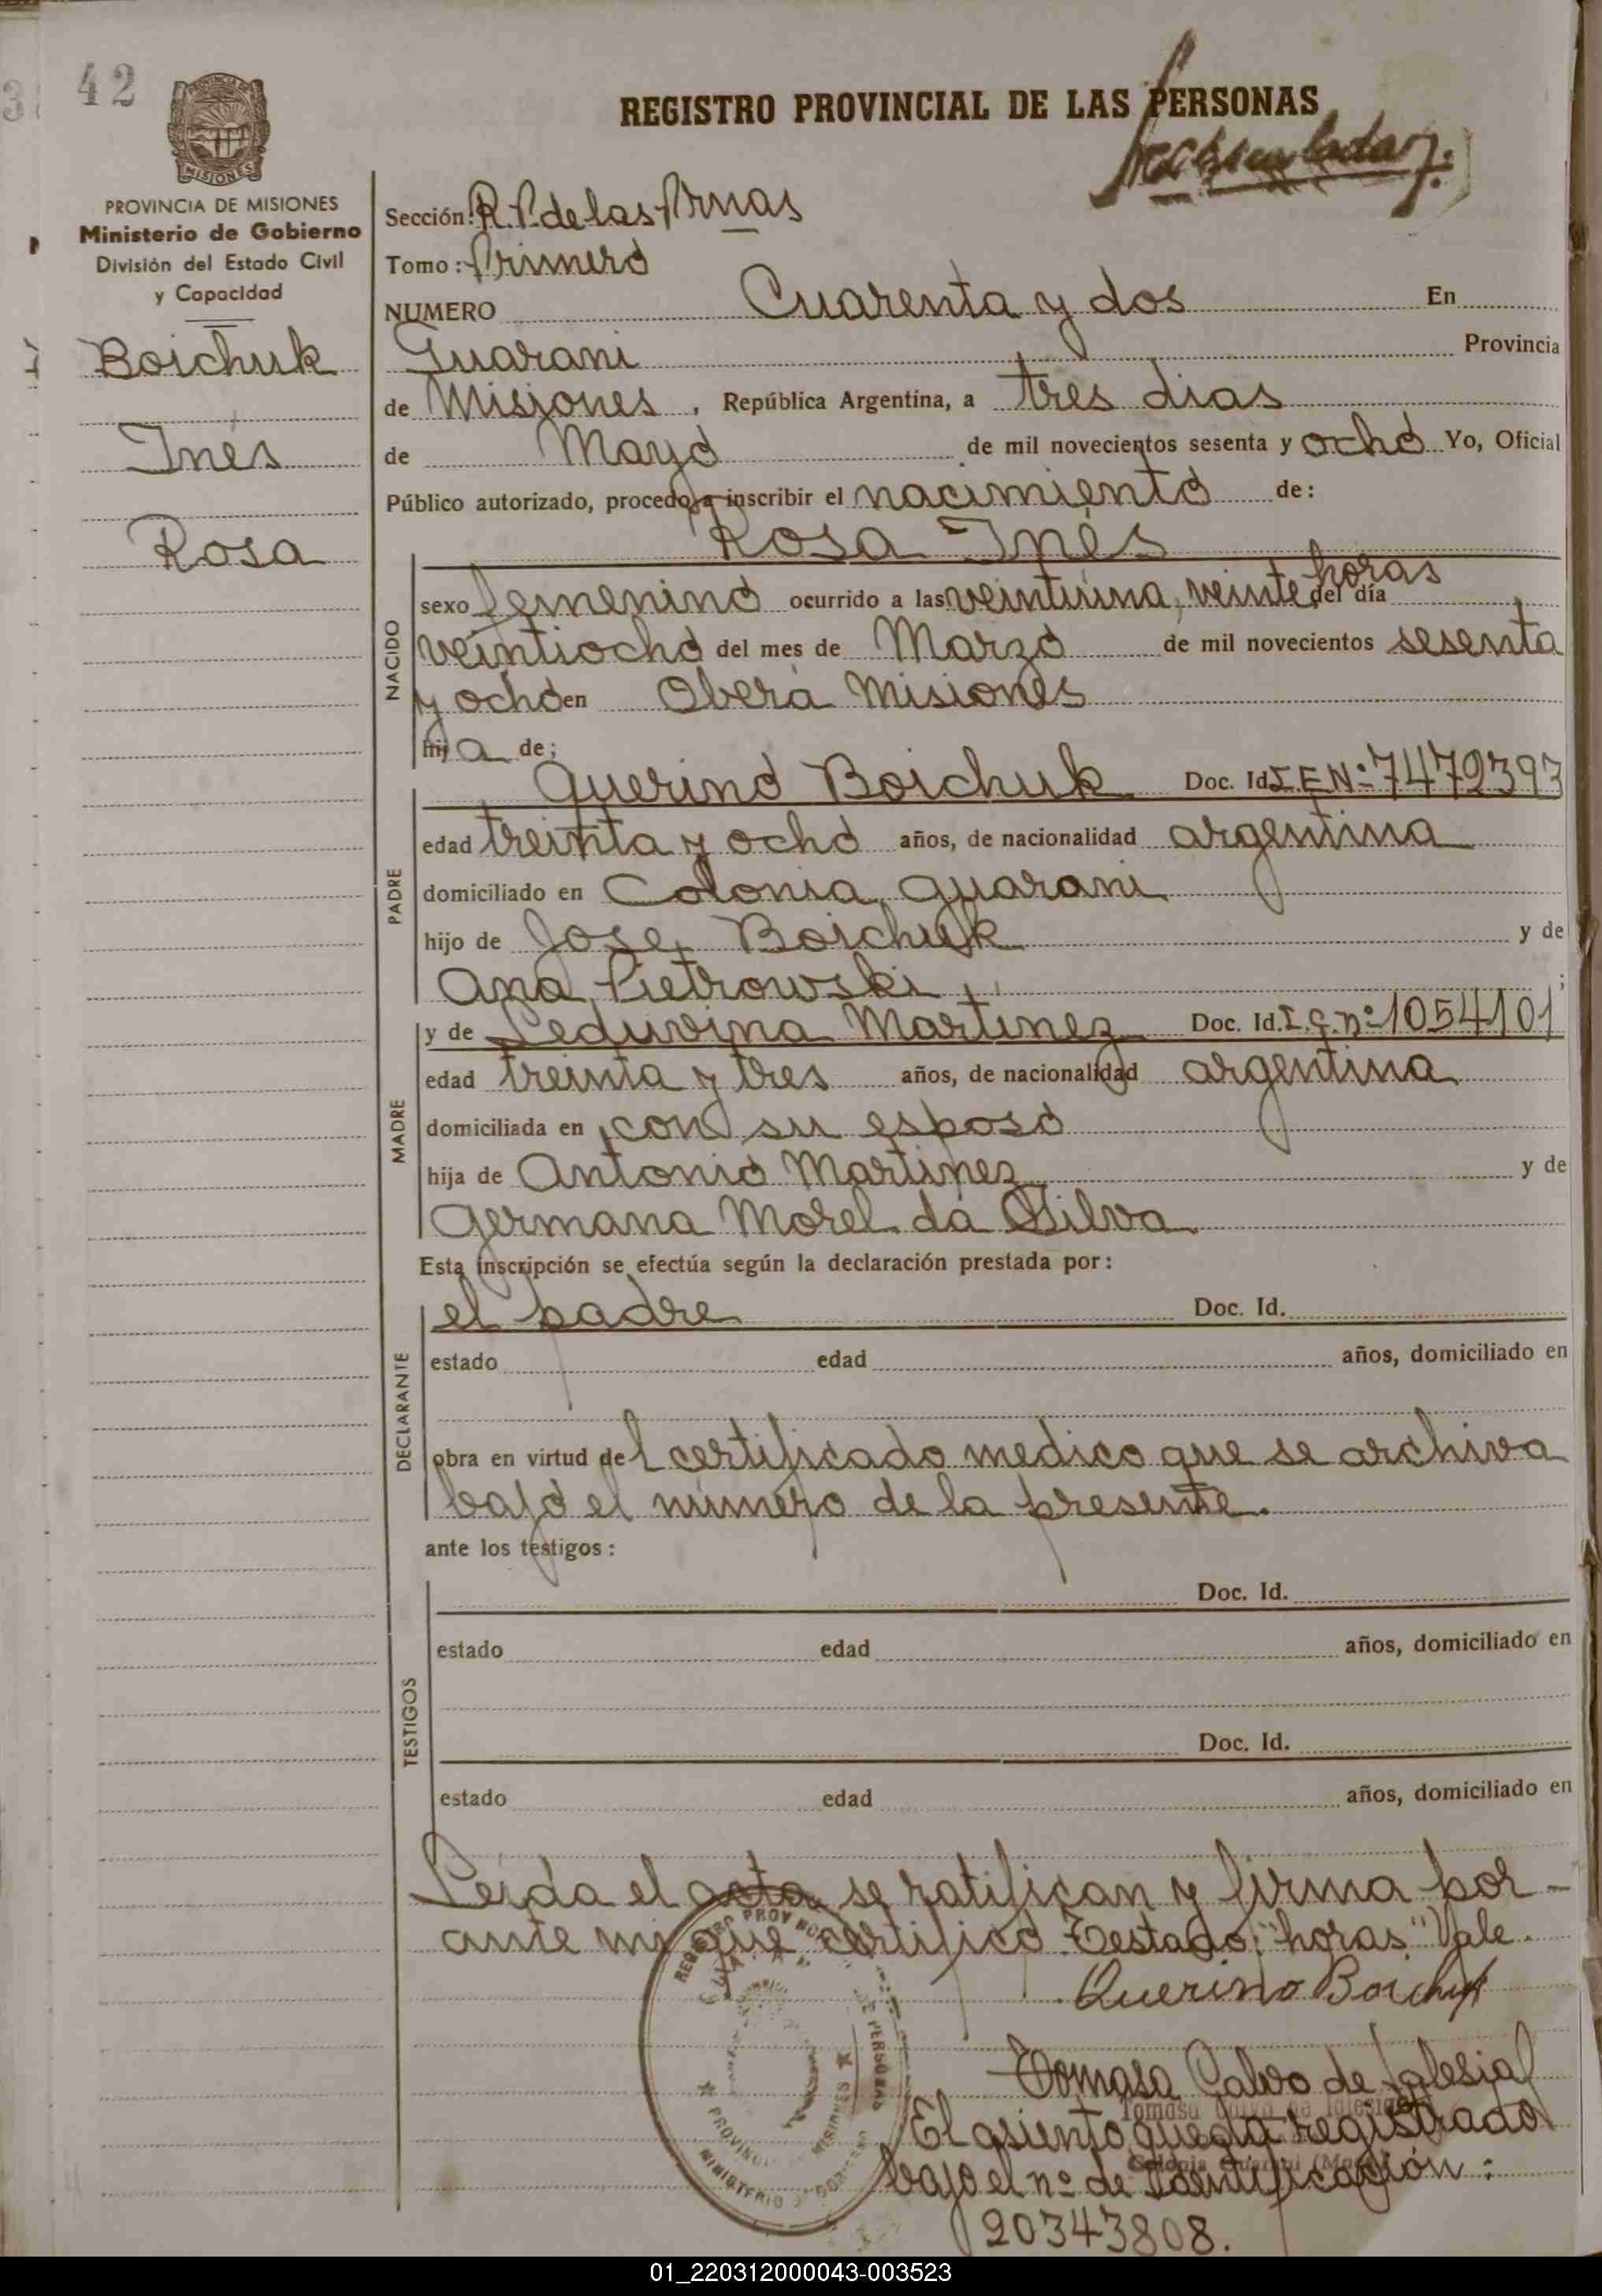 42
REGISTRO PROVINCIAL DE LAS PERSONAS
MISIONES
PROVINCIA DE MISIONES
Ministerio de Gobierno
División del Estado Civil
y Capacidad
Boichuk
Inés
Rosa
Sección: R.P. de las Prnas
Tomo: Primero
NUMERO Cuarenta y dos En
Guarani Provincia
de Misiones, República Argentina, a tres dias
de Mayo de mil novecientos sesenta y ocho Yo, Oficial
Público autorizado, procedo a inscribir el nacimiento de:
Rosa Inés
NACIDO
horas
sexo femenino ocurrido a las veintiuna, veinte, del día
veintiocho del mes de Marzo de mil novecientos sesenta
y ocho en Oberá Misiones
hija de:
PADRE
Querino Boichuk Doc. Id. I.E.Nº 7472393
edad treinta y ocho años, de nacionalidad argentina
domiciliado en Colonia Guarani
hijo de Jose Boichuk y de
Ana Pietrowski ;
MADRE
y de Leduvina Martinez Doc. Id. I.C.nº 1054101
edad treinta y tres años, de nacionalidad argentina
domiciliada en con su esposo
hija de Antonio Martinez y de
Germana Morel da Silva
Esta inscripción se efectúa según la declaración prestada por:
DECLARANTE
el padre Doc. Id.
estado edad años, domiciliado en
obra en virtud del certificado medico que se archiva
bajo el número de la presente.
ante los testigos:
TESTIGOS
Doc. Id.
estado edad años, domiciliado en
Doc. Id.
estado edad años, domiciliado en
Leida el acta se ratifican y firma por-
ante mi que certifico. Testado: "horas" Vale.
Querino Boichuk
Tomasa Calvo de Iglesias
Tomasa Calvo de Iglesias
El asiento queda registrado
bajo el nº de Identificación:
20343808.
01_220312000043-003523